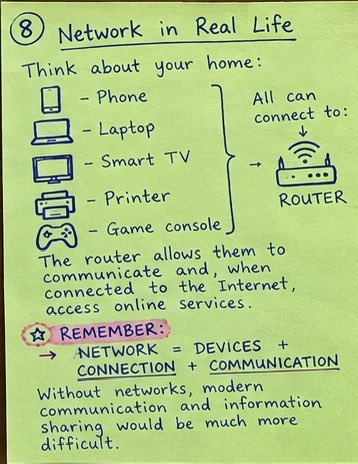 8 Network in Real Life
Think about your home:
– Phone
– Laptop
– Smart TV
– Printer
– Game console
All can
connect to:
↓
→
ROUTER
The router allows them to
communicate and, when
connected to the Internet,
access online services.
☆ REMEMBER:
→ NETWORK = DEVICES +
CONNECTION + COMMUNICATION
Without networks, modern
communication and information
sharing would be much more
difficult.